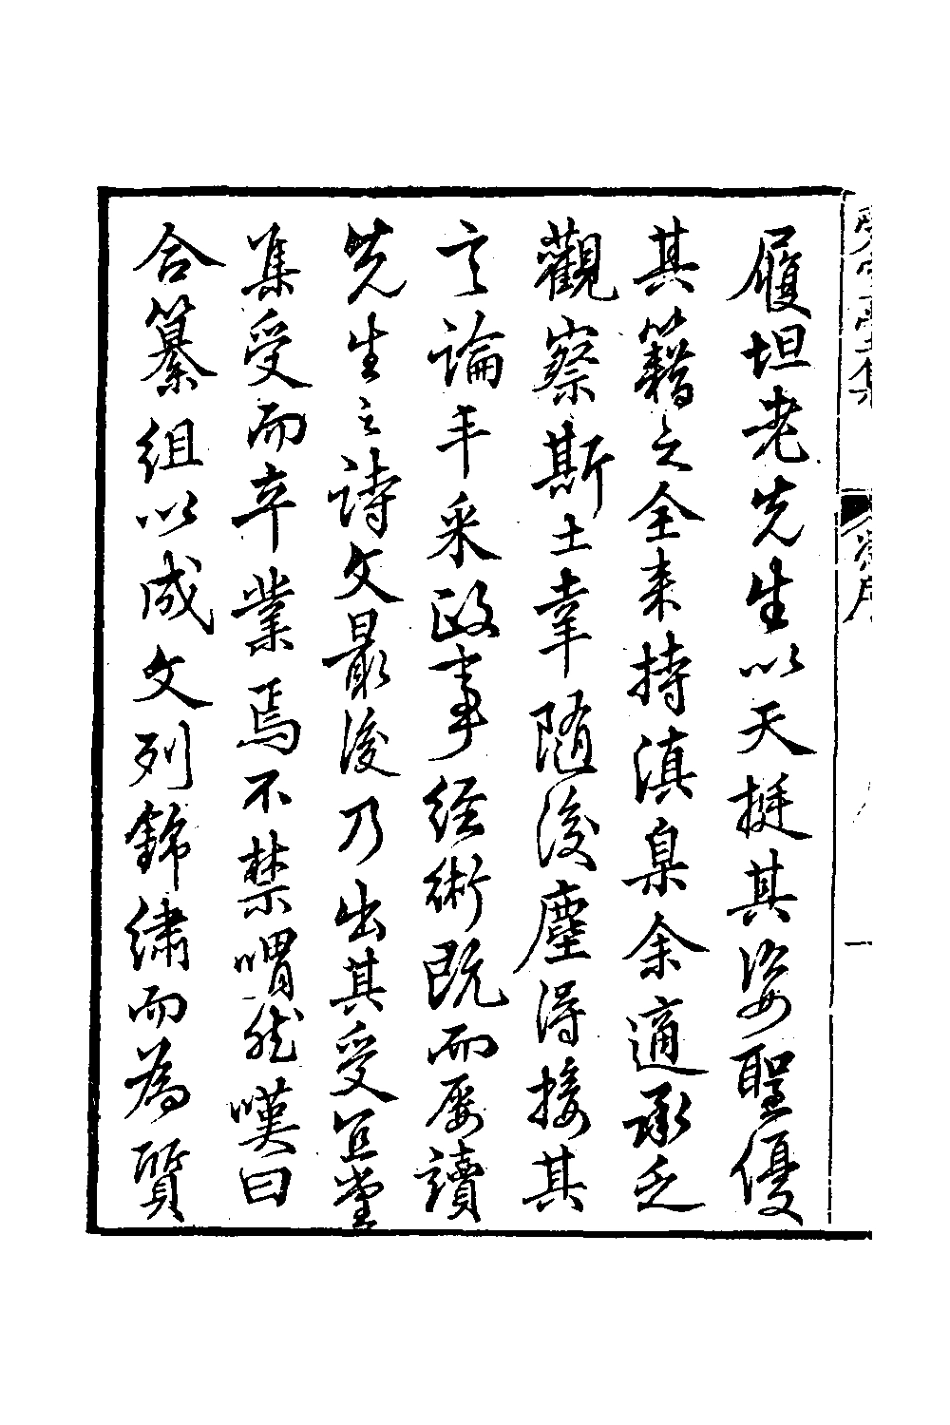 受宜堂集
序
一
履坦老先生以天挺其姿聖優
其籍之全来持滇臬余適承乏
觀察斯土幸隨後塵得接其
言論丰采政事經術既而屡讀
先生之詩文最後乃出其受宜堂
集受而卒業焉不禁喟然嘆曰
合纂組以成文列錦繡而為質